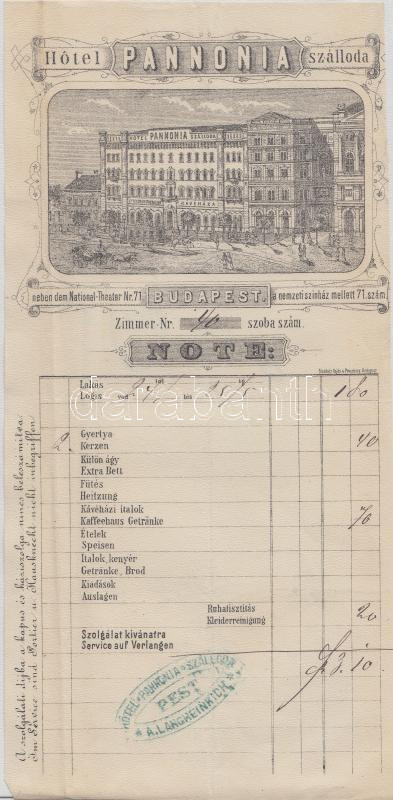 Hôtel PANNONIA szálloda
HÔTEL PANNONIA SZÁLLODA
KÁVÉHÁZ
neben dem National-Theater Nr. 71. BUDAPEST. a nemzeti szinház mellett 71. szám.
Zimmer-Nr. 40 szoba szám.
NOTE:
Lakás
Logis von 24/5 bis 25/5 1 80
2 Gyertya
Kerzen 40
Külön ágy
Extra Bett
Fűtés
Heitzung
Kávéházi italok
Kaffeehaus Getränke 70
Ételek
Speisen
Italok, kenyér
Getränke, Brod
Kiadások
Auslagen
Ruhatisztitás
Kleiderreinigung 20
Szolgálat kivánatra
Service auf Verlangen
3.10
A szolgálati díjba a kapus és háziszolga nincs beleszámitva.
Im Service sind Portier u. Hausknecht nicht inbegriffen.
HÔTEL PANNONIA SZÁLLODA
PEST
A. LANGREINRICH
darabanth